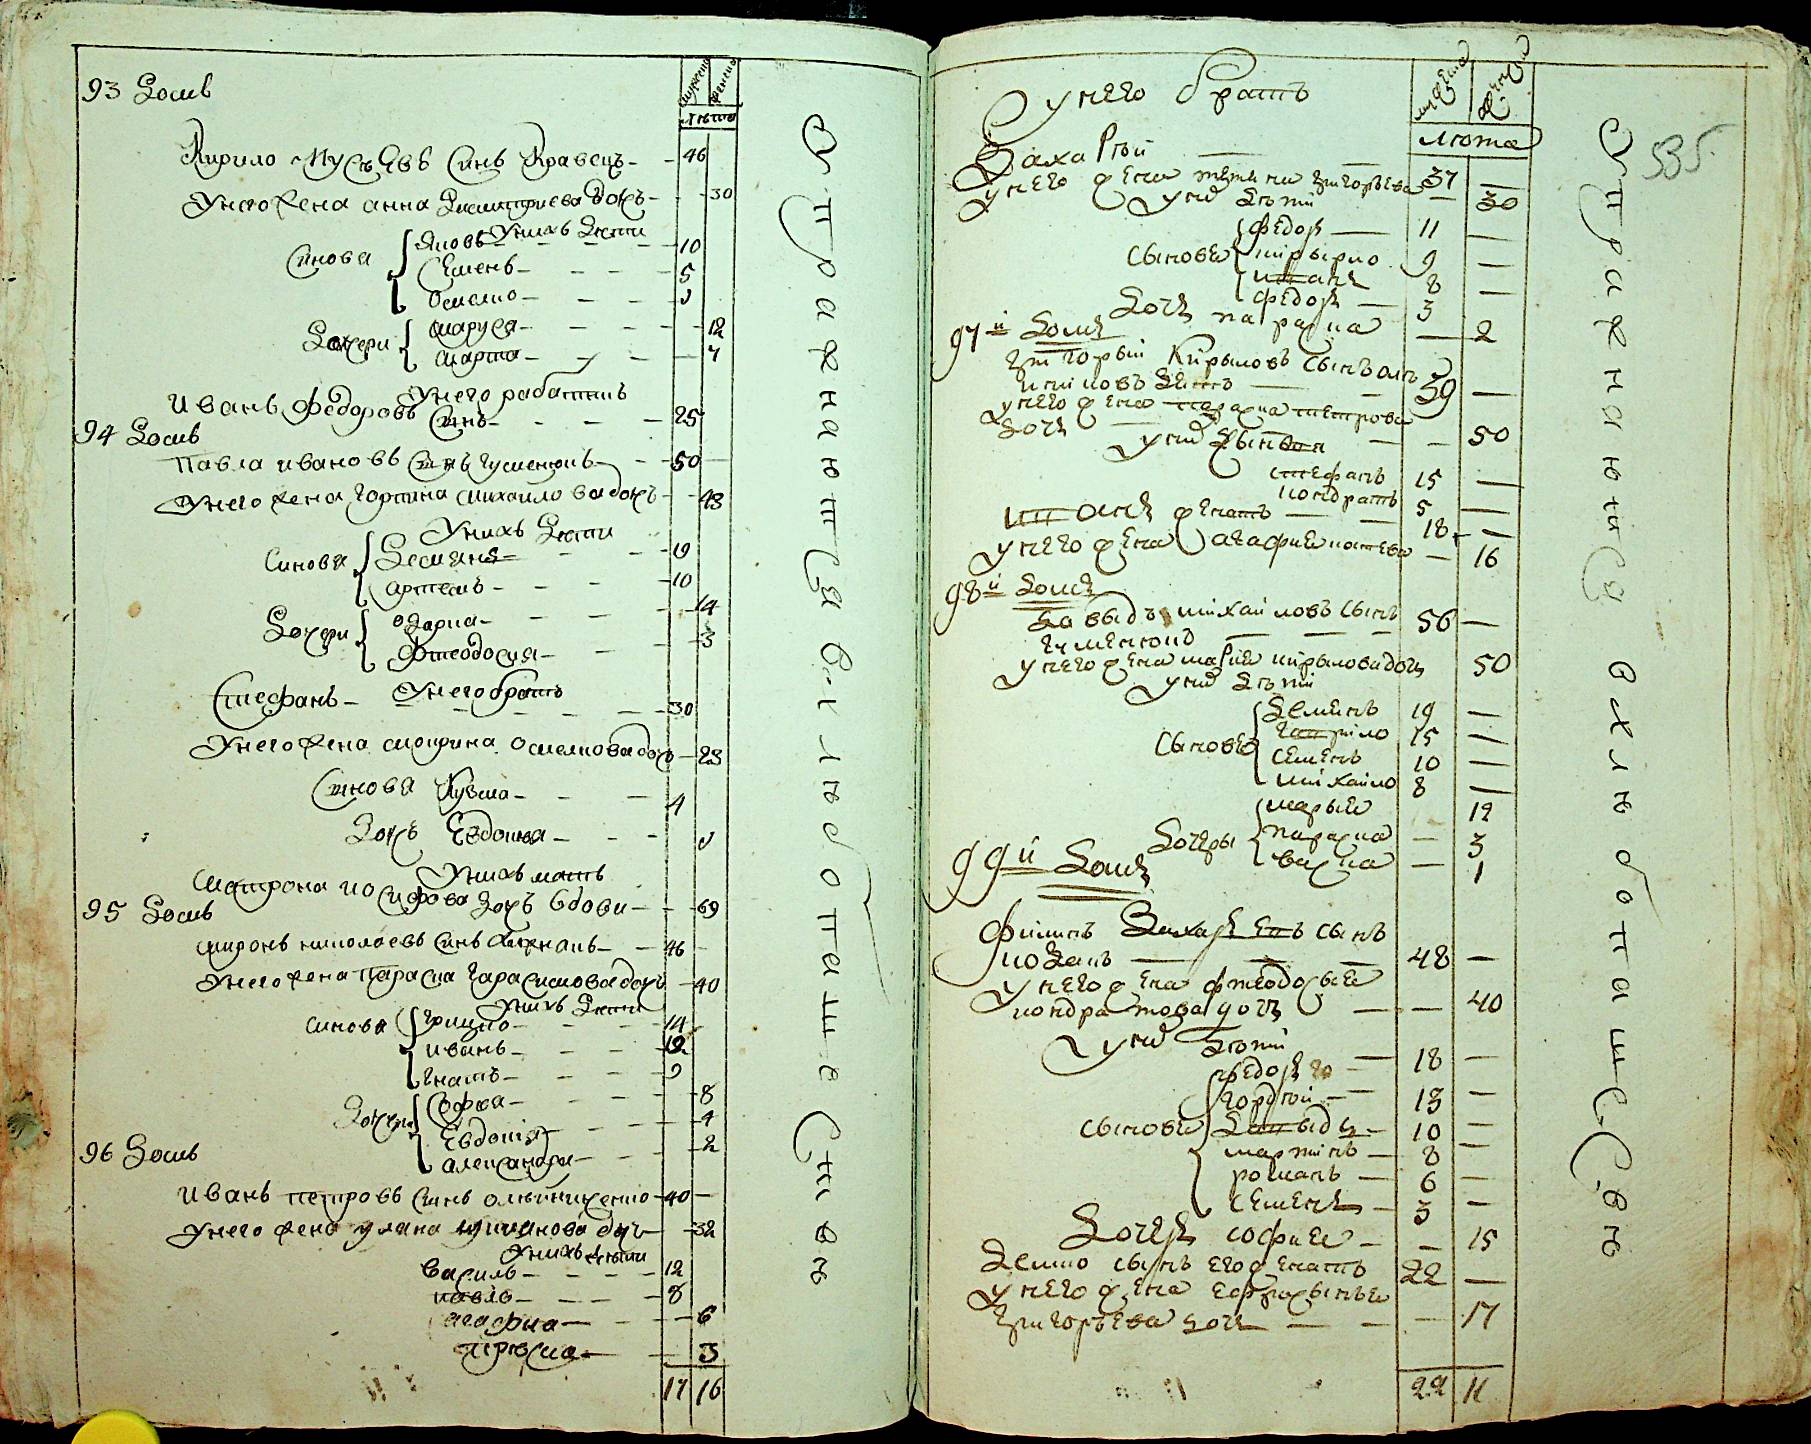 93 Домъ
мужеска женска
лѣта
Кирило Мусѣевъ Синъ Кравецъ 46
Унего жена анна Дмитриева дочъ 30
Унихъ Дѣти
Синовя
Яковъ 10
Семенъ 5
Осмелко
Дочери
маруся 12
марта 7
Унего работникъ
Иванъ Федоровъ Синъ 25
94 Домъ
Павла ивановъ Синъ 50
Унего жена горпина михаиловадочъ 43
Унихъ Дѣти
Синовя
Демянъ 19
артемъ 10
Дочери
одарка 14
Фтеодосия 3
Унего братъ
Стефанъ 30
Унего жена мотрина 23
Синовя Кузма 4
Дочъ Евдокия
Унихъ мать
Матрона иосифова Дочъ вдова 69
95 Домъ
миронъ николаевъ Синъ 46
Унего жена Параска Гарасимовадочъ 40
Унихъ Дѣти
Синовя
грицко 14
иванъ 12
гнатъ 9
Дочери
София 8
Евдокия 4
александра 2
96 Домъ
Иванъ петровъ Синъ 40
Унего жена уляна 32
Унихъ Дѣти
василь 12
павло 8
агафия 6
приска 3
17 16
Упражнаютця вхлѣбопашесствѣ
535
Унего братъ
мужеска женска
лѣта
Захарiй 37
унего жена татьяна григорьева 30
унид Дѣти
Сыновѣ
Федор 11
кирырло 9
иван 8
Федор 3
Дочь параска 2
97й Домъ
григорый Кирыловъ Сынъ 39
унего жена параска петрова
дочь 50
унид Сыновя
стефанъ 15
кондратъ 5
иван женатъ 18
унего жена агафия 16
98й Домъ
Давыдъ михайловъ Сынъ 56
унего жена мария кирыловадочь 50
унид Дѣти
Сыновѣ
Демянъ 19
гаврило 15
семенъ 10
михайло 8
Дочеры
марыя 12
параска 3
васка 1
99й Домъ
Филипъ Захарьевъ сынъ 48
унего жена фтеодосыя
кондратова дочь 40
унид Дѣти
Сыновѣ
Федор 18
гордѣй 13
Давыдъ 10
мартинъ 8
романъ 6
семенъ 3
Дочь софия 15
Демко сынъ его женатъ 22
унего жена ефросыня
григорьева дочь 17
22 11
Упражнаюнця вхлѣбопашесвѣ